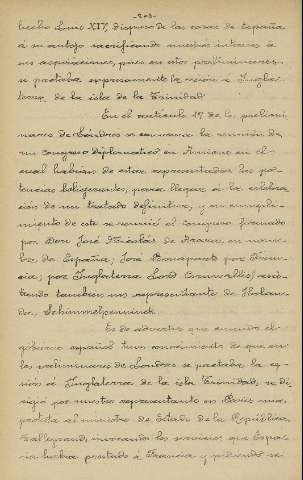 -203-
hecho Luis XIV, dispuso de las cosas de España
á su antojo sacrificando nuestros intereses á
sus aspiraciones, pues en estos preliminares
se pactaba expresamente la cesión á Ingla-
terra de la isla de la Trinidad.
En el artículo 17 de los prelimi-
nares de Londres se convenia la reunión de
un congreso diplomático en Amiens en el
cual habian de estar representadas las po-
tencias beligerantes, para llegar á la celebra-
ción de un tratado definitivo, y en cumpli-
miento de este se reunió el congreso formado
por Don José Nicolás de Azara en nom-
bre de España; José Bonaparte por Fran-
cia; por Inglaterra Lord Cornwallis, asis-
tiendo tambien un representante de Holan-
da, Schimmelpenninck.
Es de advertir que cuando el
gobierno español tuvo conocimiento de que en
los preliminares de Londres se pactaba la ce-
sión á Inglaterra de la isla Trinidad, se di-
rigió por nuestro representante en Paris una
partida al ministro de Estado de la República,
Talleyrand, invocando los servicios que Espa-
ña habia prestado á Francia y pidiendo se